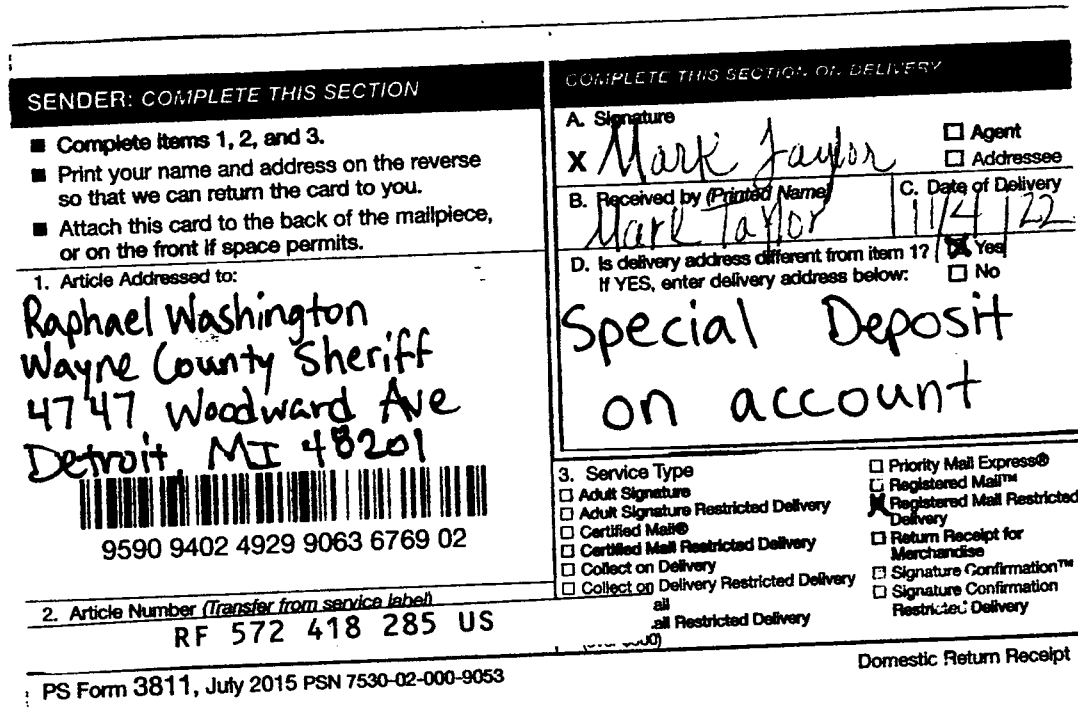 SENDER: COMPLETE THIS SECTION
■ Complete items 1, 2, and 3.
■ Print your name and address on the reverse
so that we can return the card to you.
■ Attach this card to the back of the mailpiece,
or on the front if space permits.
1. Article Addressed to:
Raphael Washington
Wayne County Sheriff
4747 Woodward Ave
Detroit, MI 48201
9590 9402 4929 9063 6769 02
2. Article Number (Transfer from service label)
RF 572 418 285 US
COMPLETE THIS SECTION ON DELIVERY
A. Signature
X Mark Taylor
☐ Agent
☐ Addressee
B. Received by (Printed Name)
Mark Taylor
C. Date of Delivery
11/4/22
D. Is delivery address different from item 1? ☒ Yes
If YES, enter delivery address below: ☐ No
Special Deposit
on account
3. Service Type
☐ Adult Signature
☐ Adult Signature Restricted Delivery
☐ Certified Mail®
☐ Certified Mail Restricted Delivery
☐ Collect on Delivery
☐ Collect on Delivery Restricted Delivery
ail
ail Restricted Delivery
☐ Priority Mail Express®
☐ Registered Mail™
☒ Registered Mail Restricted
Delivery
☐ Return Receipt for
Merchandise
☐ Signature Confirmation™
☐ Signature Confirmation
Restricted Delivery
PS Form 3811, July 2015 PSN 7530-02-000-9053
Domestic Return Receipt